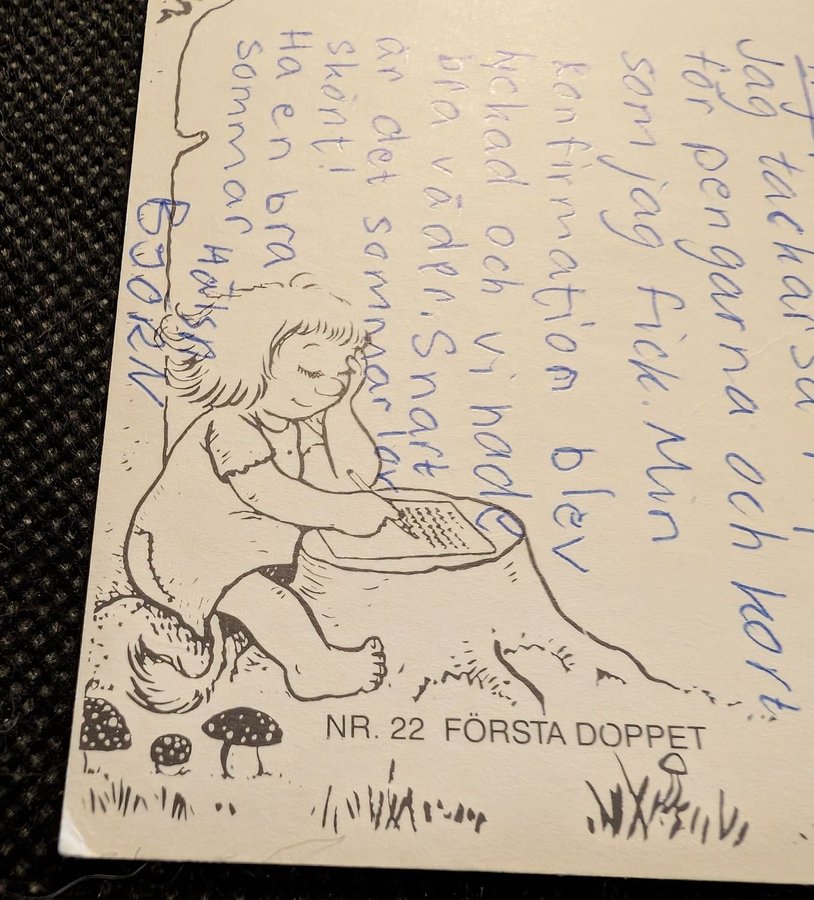 Jag tackar så
för pengarna och kort
som jag fick. Min
konfirmation blev
lyckad och vi hade
bra väder. Snart
är det sommarlov
skönt!
Ha en bra
sommar
Hälsn
BJÖRN
NR. 22 FÖRSTA DOPPET